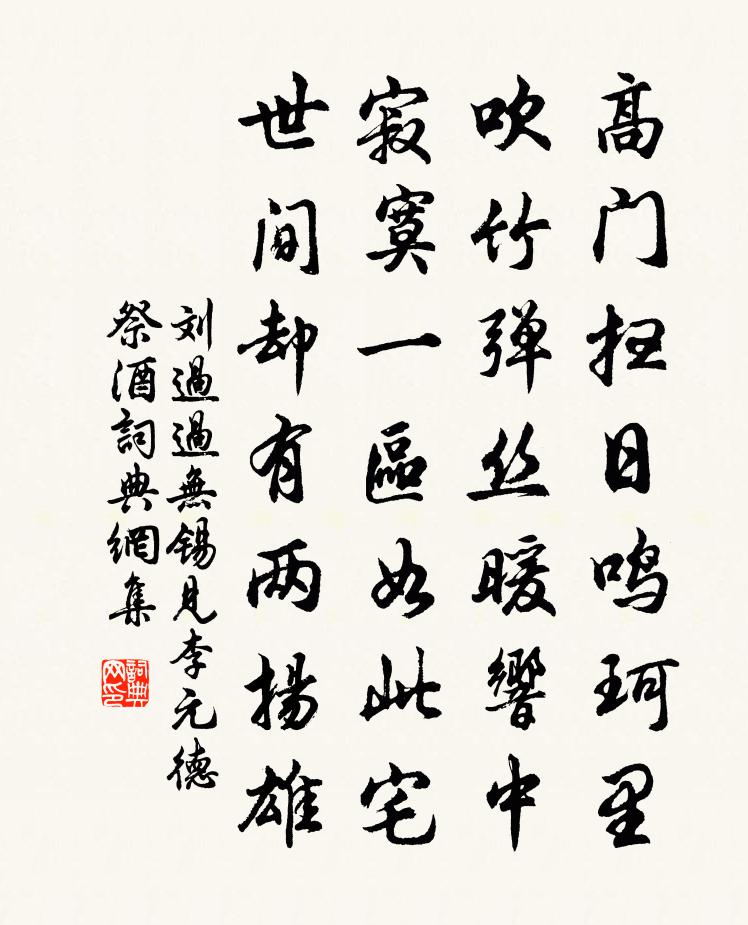 高门日鸣珂里
吹竹弹丝暖響中
寂寞一區如此宅
世间却有两揚雄
刘過過無锡见李元德
祭酒詞典網集
詞典网印